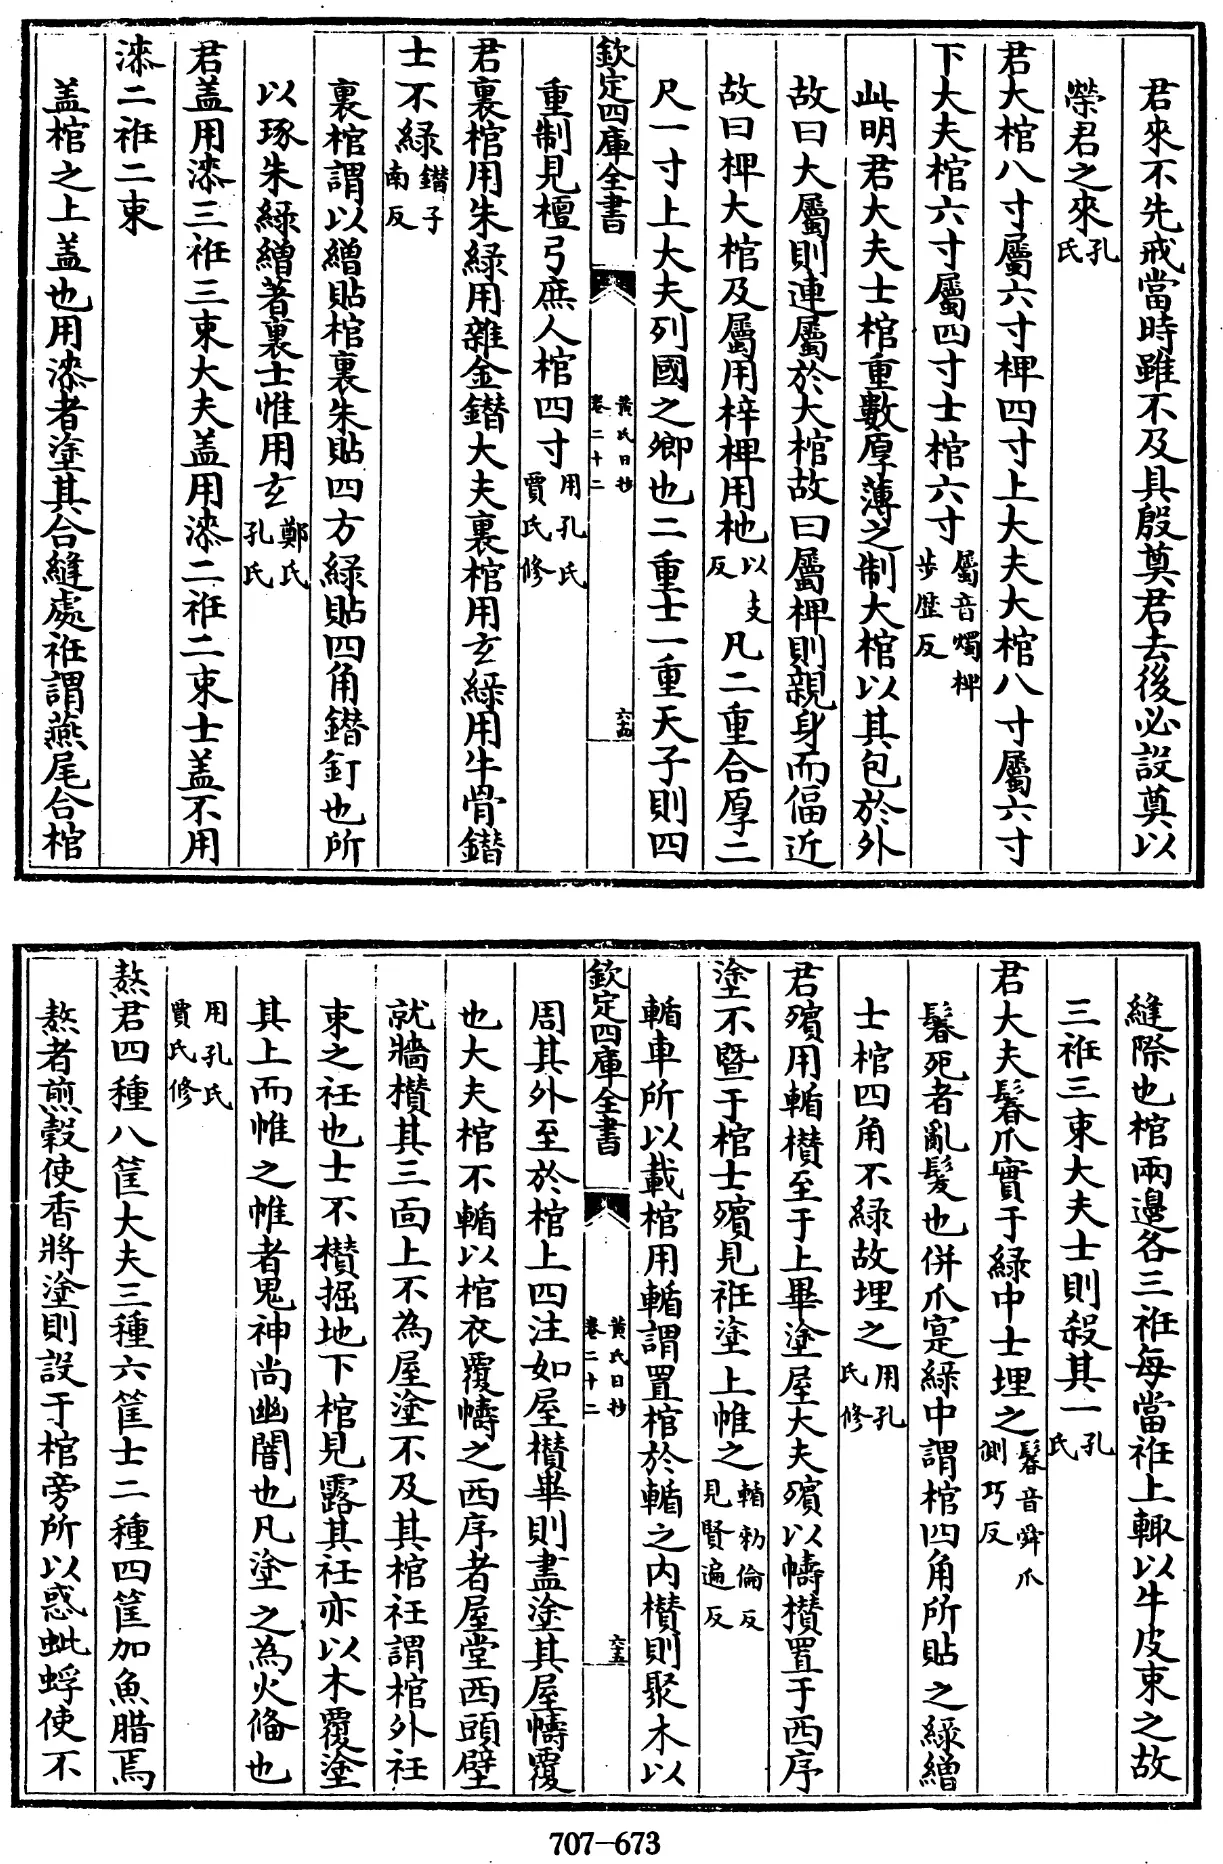 君來不先戒當時雖不及具殷奠君去後必設奠以
榮君之來孔氏
君大棺八寸屬六寸椑四寸上大夫大棺八寸屬六寸
下大夫棺六寸屬四寸士棺六寸屬音燭椑步歴反
此明君大夫士棺重數厚薄之制大棺以其包於外
故曰大屬則連屬於大棺故曰屬椑則親身而偪近
故曰椑大棺及屬用梓椑用杝以支反凡二重合厚二
尺一寸上大夫列國之卿也二重士一重天子則四
欽定四庫全書 黄氏日抄卷二十二 六十四
重制見檀弓庶人棺四寸用孔氏賈氏修
君裏棺用朱緑用雜金鐕大夫裏棺用玄緑用牛骨鐕
士不緑鐕子南反
裏棺謂以繒貼棺裏朱貼四方緑貼四角鐕釘也所
以琢朱緑繒著裏士惟用玄鄭氏孔氏
君盖用漆三衽三束大夫盖用漆二衽二束士盖不用
漆二衽二束
盖棺之上盖也用漆者塗其合縫處衽謂燕尾合棺
縫際也棺兩邊各三衽每當衽上輙以牛皮束之故
三衽三束大夫士則殺其一孔氏
君大夫鬊爪實于緑中士埋之鬊音舜爪側巧反
鬊死者亂髮也併爪寔緑中謂棺四角所貼之緑繒
士棺四角不緑故埋之用孔氏修
君殯用輴欑至于上畢塗屋大夫殯以幬欑置于西序
塗不暨于棺士殯見衽塗上帷之輴勑倫反見賢遍反
輴車所以載棺用輴謂置棺於輴之内欑則聚木以
欽定四庫全書 黄氏日抄卷二十二 六十五
周其外至於棺上四注如屋欑畢則盡塗其屋幬覆
也大夫棺不輴以棺衣覆幬之西序者屋堂西頭壁
就牆欑其三面上不為屋塗不及其棺衽謂棺外衽
束之衽也士不欑掘地下棺見露其衽亦以木覆塗
其上而帷之帷者鬼神尚幽闇也凡塗之為火備也
用孔氏賈氏修
熬君四種八筐大夫三種六筐士二種四筐加魚腊焉
熬者煎穀使香將塗則設于棺旁所以惑蚍蜉使不
707-673